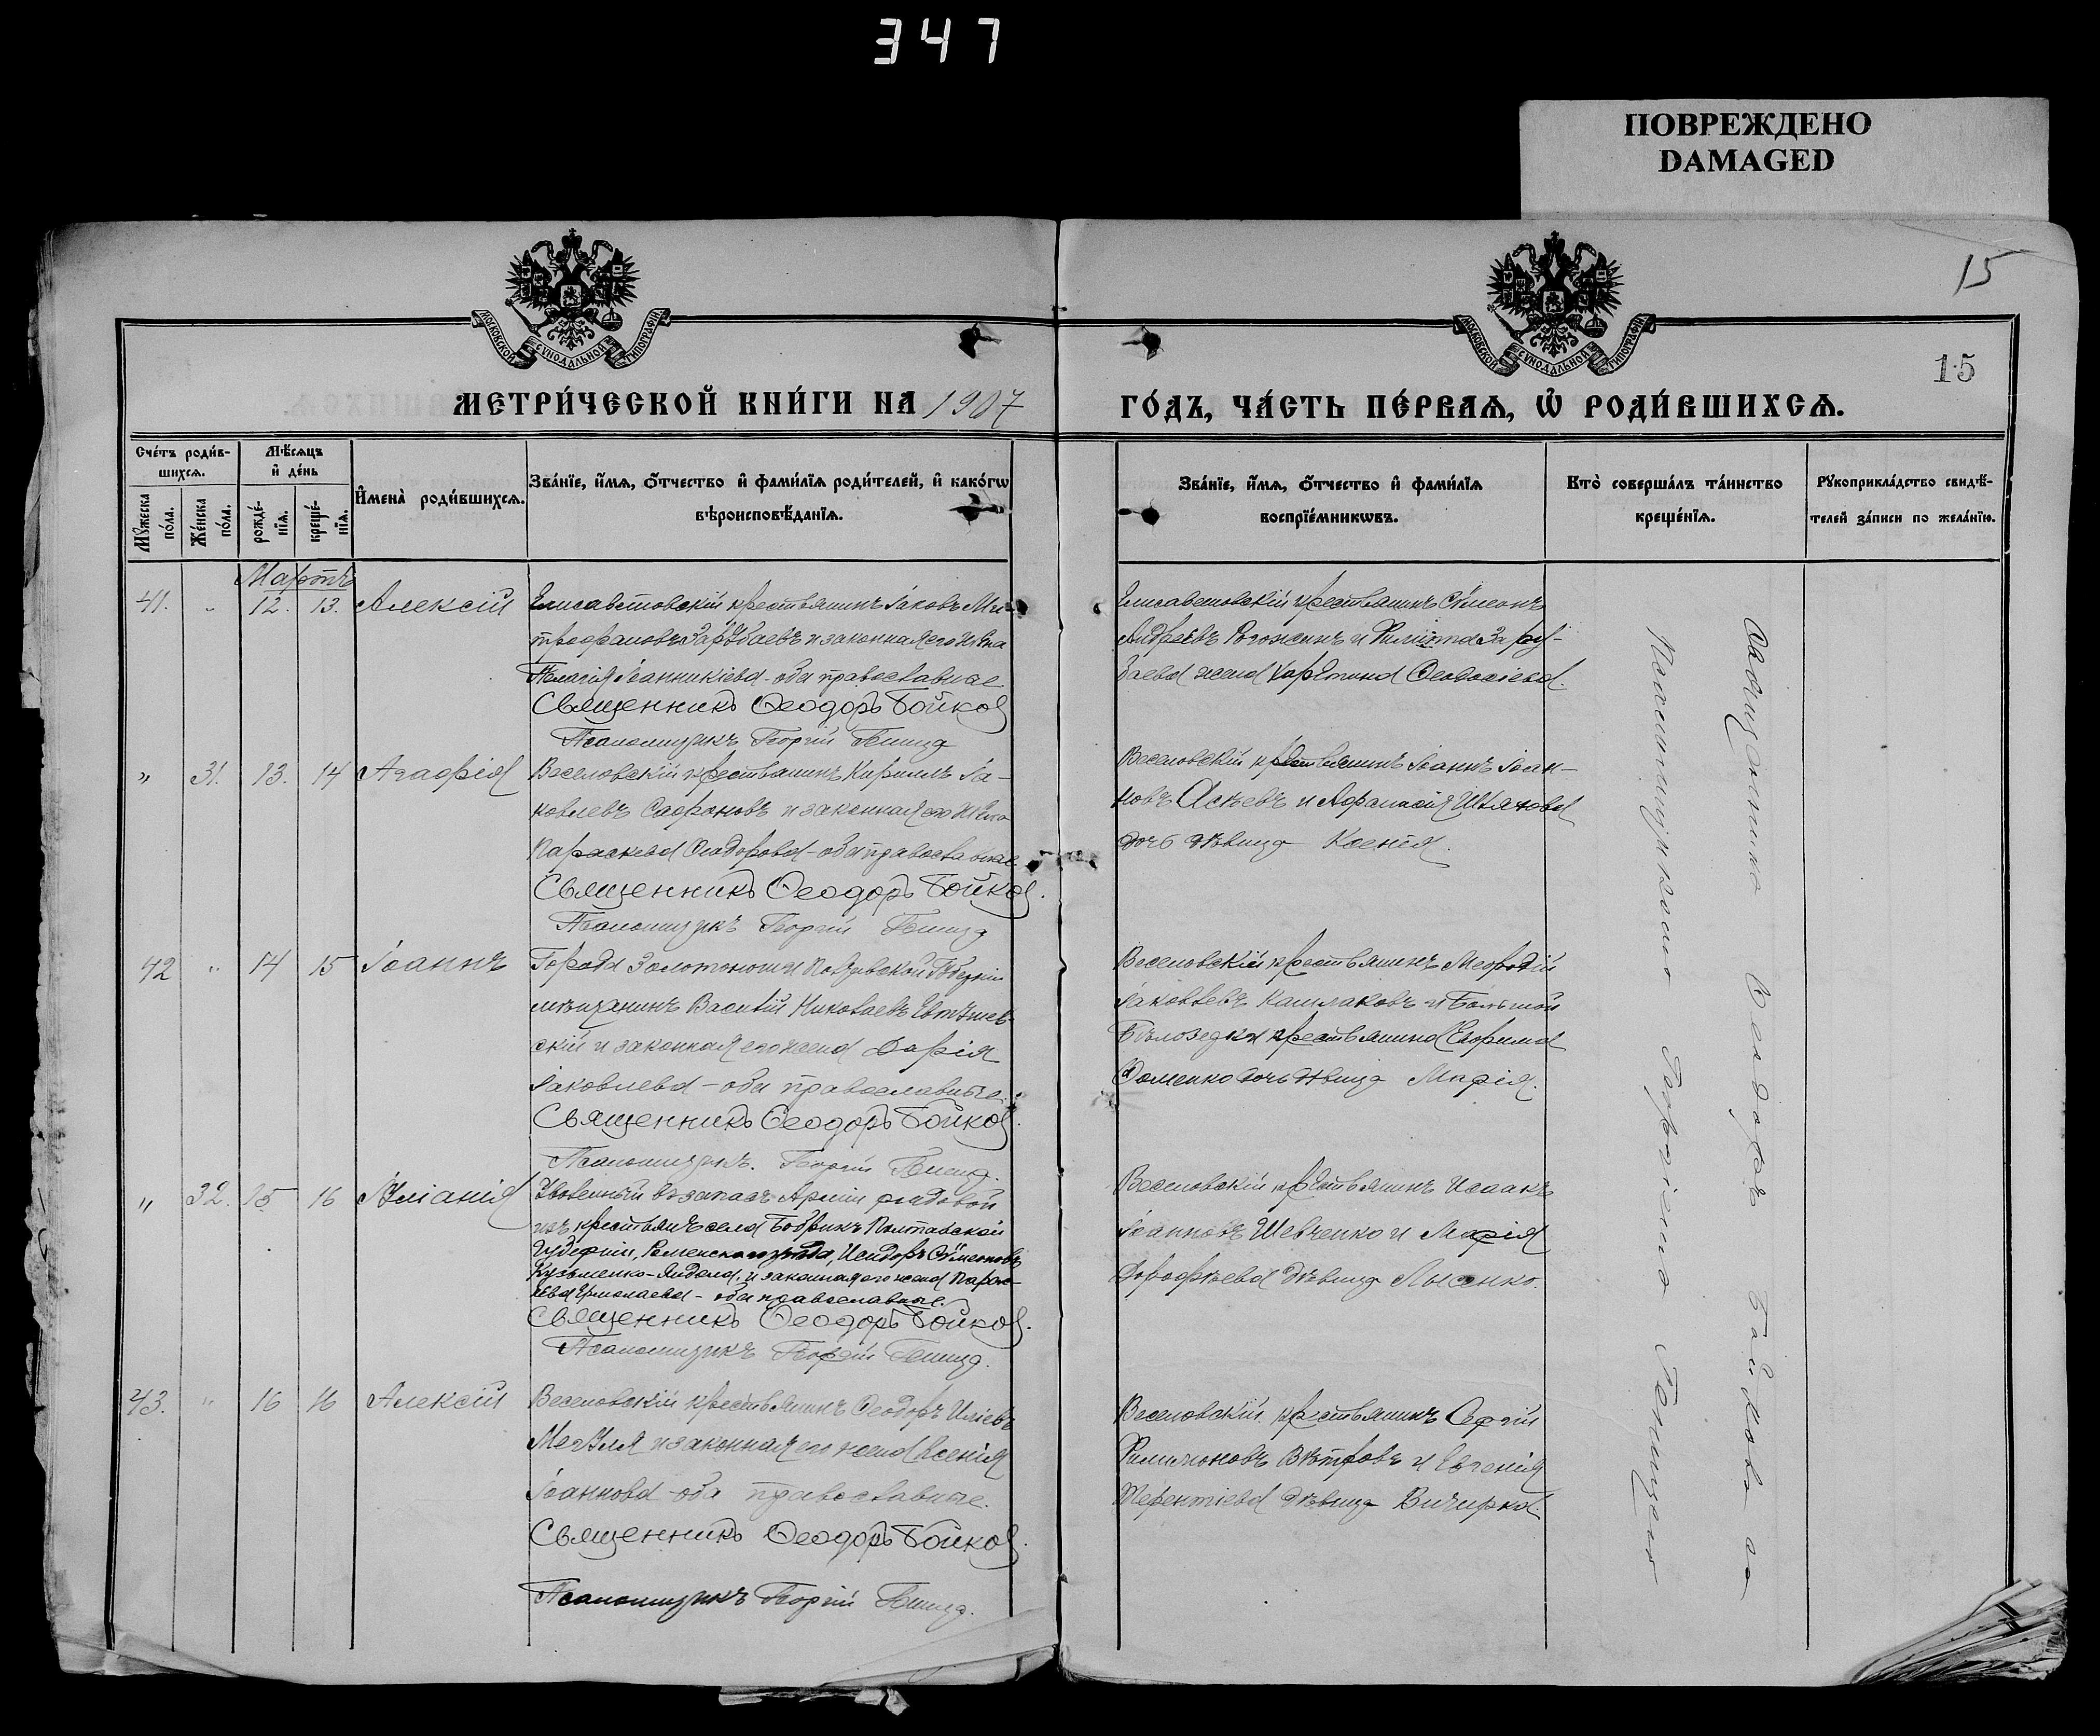 347
ПОВРЕЖДЕНО
DAMAGED
15
15
МОСКОВСКОЙ СУНОДАЛЬНОЙ ТИПОГРАФІИ
МОСКОВСКОЙ СУНОДАЛЬНОЙ ТИПОГРАФІИ
МЕТРИ́ЧЕСКОЙ КНИ́ГИ НА 1907
ГО́ДЪ, ЧА́СТЬ ПЕ́РВАѦ, Ѡ҆ РОДИ́ВШИХСѦ.
Сче́тъ роди́в-
шихсѧ.
Мꙋжеска по́ла.
Же́нска по́ла.
Мѣ́сѧцъ
и҆ де́нь
рожде́-
нїѧ.
креще́-
нїѧ.
И҆мена̀ роди́вшихсѧ.
Зва́нїе, и҆́мѧ, ѻ҆́тчество и҆ фами́лїѧ роди́телей, и҆ како́гѡ
вѣроисповѣ́данїѧ.
Зва́нїе, и҆́мѧ, ѻ҆́тчество и҆ фами́лїѧ
воспрїе́мникѡвъ.
Кто̀ соверша́лъ та́инство
креще́нїѧ.
Рꙋкоприкла́дство свидѣ́-
телей за́писи по жела́нїю.
Мартъ
41. " 12. 13. Алексій
Елисаветовскій крестьянинъ Іаковъ Ми-
трофановъ Зарубаевъ и законная его жена
Пелагія Іоанникіева - оба православные
Священникъ Ѳеодоръ Бойковъ
Псаломщикъ Георгій
Елисаветовскій крестьянинъ Симеонъ
Андреевъ Рогожинъ и Филиппа Зару-
баева жена Харитина Ѳеодосіева.
" 31. 13. 14 Агафія
Веселовскій крестьянинъ Кириллъ Іа-
ковлевъ Сафоновъ и законная его жена
Параскева Ѳеодорова - оба православные
Священникъ Ѳеодоръ Бойковъ.
Псаломщикъ Георгій
Веселовскій крестьянинъ Іоаннъ Іоан-
новъ и Афанасія
дочь дѣвица Ксенія.
42 " 14 15 Іоаннъ
Города Золотоноши Полтавской Губерніи
мѣщанинъ Василій Николаевъ
скій и законная его жена Дарія
Іаковлева - оба православные.
Священникъ Ѳеодоръ Бойковъ.
Псаломщикъ. Георгій
Веселовскій крестьянинъ Меѳодій
Іаковлевъ Кашлаковъ и Большой
Бѣлозерки крестьянина Ефрема
Доменко дочь дѣвица Марія.
" 32. 15 16 Иліанія
Уволенный въ запасъ Арміи рядовой
изъ крестьянъ села Бобрикъ Полтавской
Губерніи, Роменскаго уѣзда, Исидоръ Симеоновъ
Кузьменко и законная его жена Парас-
кева Ермолаева - оба православные.
Священникъ Ѳеодоръ Бойковъ.
Псаломщикъ Георгій
Веселовскій крестьянинъ Исаакъ
Іоанновъ Шевченко и Марія
Дорофѣева дѣвица Лысенко.
43. " 16 16 Алексій
Веселовскій крестьянинъ Ѳеодоръ Иліевъ
и законная его жена Ксенія
Іоаннова - оба православные.
Священникъ Ѳеодоръ Бойковъ.
Псаломщикъ Георгій
Веселовскій крестьянинъ Сергій
Филимоновъ Вѣтровъ и Евгенія
Терентіева дѣвица Вичирка.
Священникъ Ѳеодоръ Бойковъ съ
Псаломщикомъ Георгіемъ